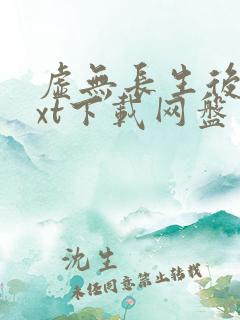 虚無長生後
xt下載网盘
沈生
未经同意禁止转载